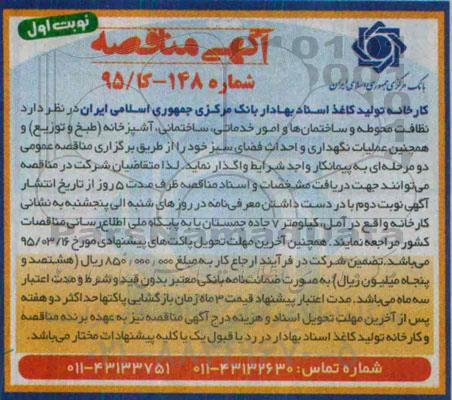 نوبت اول
آگهی مناقصه
شماره ۱۴۸-کا/۹۵
بانک مرکزی جمهوری اسلامی ایران
کارخانه تولید کاغذ اسناد بهادار بانک مرکزی جمهوری اسلامی ایران در نظر دارد
نظافت محوطه و ساختمان‌ها و امور خدماتی، ساختمانی، آشپزخانه (طبخ و توزیع) و
همچنین عملیات نگهداری و احداث فضای سبز خود را از طریق برگزاری مناقصه عمومی
دو مرحله‌ای به پیمانکار واجد شرایط واگذار نماید. لذا متقاضیان شرکت در مناقصه
می‌توانند جهت دریافت مشخصات و اسناد مناقصه ظرف مدت ۵ روز از تاریخ انتشار
آگهی نوبت دوم با در دست داشتن معرفی‌نامه در روزهای شنبه الی پنجشنبه به نشانی
کارخانه واقع در آمل، کیلومتر ۷ جاده چمستان یا به پایگاه ملی اطلاع رسانی مناقصات
کشور مراجعه نمایند. همچنین آخرین مهلت تحویل پاکت‌های پیشنهادی مورخ ۹۵/۰۳/۱۶
می‌باشد. تضمین شرکت در فرآیند ارجاع کار به مبلغ ۸۵۰/۰۰۰/۰۰۰ ریال (هشتصد و
پنجاه میلیون ریال) به صورت ضمانت‌نامه بانکی معتبر بدون قید و شرط و مدت اعتبار
سه ماه می‌باشد. مدت اعتبار پیشنهاد قیمت ۳ ماه زمان بازگشایی پاکتها حداکثر دو هفته
پس از آخرین مهلت تحویل اسناد و هزینه درج آگهی مناقصه نیز به عهده برنده مناقصه
و کارخانه تولید کاغذ اسناد بهادار در رد یا قبول یک یا کلیه پیشنهادات مختار می‌باشد.
شماره تماس: ۴۳۱۳۲۶۳۰-۰۱۱ ۴۳۱۳۳۷۵۱-۰۱۱